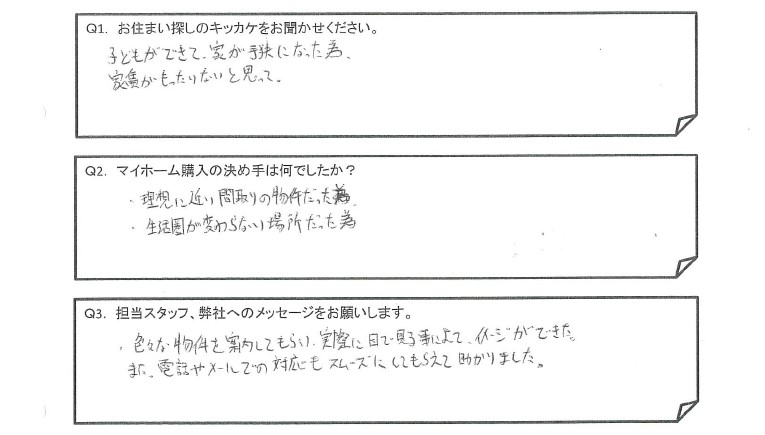 Q1. お住まい探しのキッカケをお聞かせください。
子どもができて、家が手狭になった為、
家賃がもったいないと思って。
Q2. マイホーム購入の決め手は何でしたか？
・理想に近い間取りの物件だった為、
・生活圏が変わらない場所だった為
Q3. 担当スタッフ、弊社へのメッセージをお願いします。
・色々な物件を案内してもらい、実際に目で見る事によって、イメージができた。
また、電話やメールでの対応もスムーズにしてもらえて助かりました。